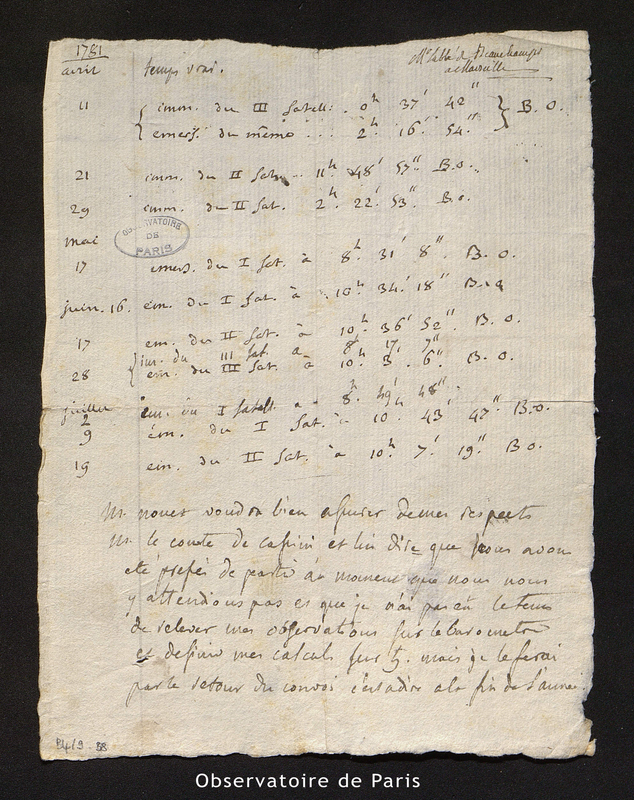 1781
Mr l'abbé de Beauchamps
a Marseille
avril temps vrai.
11 { imm. du III Satell. 0h 37' 42" } B. o.
{ emers. du même ... 2h 16' 54"
21 imm. du II Sat. .. 11h 48' 57" B. o.
29 imm. du II Sat. 2h 22' 53" B. o.
OBSERVATOIRE DE PARIS
mai
17 emers. du I Sat. à 8h 31' 8" B. o.
juin. 16. em. du I Sat. à 10h 34' 18" B. o
17 em. du II Sat. à 10h 36' 52" B. o.
{ im. du III Sat. a 8h 17' 7"
28 em. du III Sat. à 10h 3' 6" B. o.
juillet
2 em. du I Satell. a 8h 49' 48"
9 em. du I Sat. à 10h 43' 47" B. o.
19 em. du II Sat. à 10h 7' 19" B o.
Mr. nouet voudra bien assurer de mes respects
Mr. le comte de cassini et lui dire que nous avons
été de partir au moment que nous nous
y attendions pas et que je n'ai pas eu le tems
de relever mes observations sur le barometre
et de finir mes calculs sur ♄. mais je le ferai
par le retour du convoi c'est adire a la fin de l'année
P4/9 - 88
Observatoire de Paris